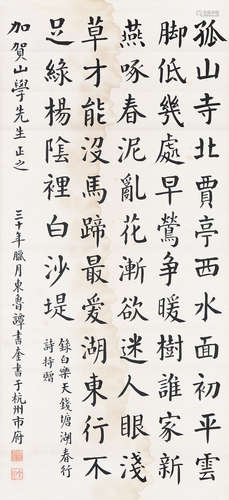 孤山寺北賈亭西水面初平雲
脚低幾處早鶯争暖樹誰家新
燕啄春泥亂花漸欲迷人眼淺
草才能沒馬蹄最愛湖東行不
足綠楊陰裡白沙堤
錄白樂天錢塘湖春行
詩持贈
加賀山學先生正之
三十年臘月東魯譚書奎書于杭州市府